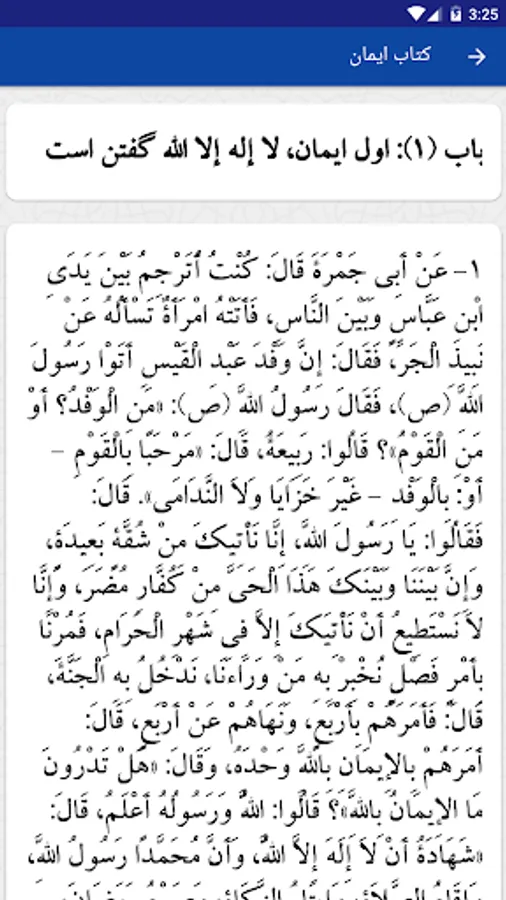 3:25
کتاب ایمان
باب (۱): اول ایمان، لا إله إلا الله گفتن است
۱- عَنْ أبِی جَمْرَةَ قَالَ: كُنْتُ أُتَرْجِمُ بَيْنَ يَدَيِ
ابْنِ عَبَّاسٍ وَبَيْنَ النَّاسِ، فَأَتَتْهُ امْرَأَةٌ تَسْأَلُهُ عَنْ
نَبِيذِ الْجَرِّ، فَقَالَ: إِنَّ وَفْدَ عَبْدِ الْقَيْسِ أَتَوْا رَسُولَ
اللهِ (ص)، فَقَالَ رَسُولُ اللهِ (ص): «مَنِ الْوَفْدُ؟ أَوْ
مَنِ الْقَوْمُ»؟ قَالُوا: رَبِيعَةُ، قَالَ: «مَرْحَبًا بِالْقَوْمِ –
أَوْ: بِالْوَفْدِ – غَيْرَ خَزَايَا وَلاَ النَّدَامَى». قَالَ:
فَقَالُوا: يَا رَسُولَ اللهِ، إِنَّا نَأْتِيكَ مِنْ شُقَّةٍ بَعِيدَةٍ،
وَإِنَّ بَيْنَنَا وَبَيْنَكَ هَذَا الْحَيَّ مِنْ كُفَّارِ مُضَرَ، وَإِنَّا
لاَ نَسْتَطِيعُ أَنْ نَأْتِيَكَ إِلاَّ فِی شَهْرِ الْحَرَامِ، فَمُرْنَا
بِأَمْرٍ فَصْلٍ نُخْبِرْ بِهِ مَنْ وَرَاءَنَا، نَدْخُلُ بِهِ الْجَنَّةَ،
قَالَ: فَأَمَرَهُمْ بِأَرْبَعٍ، وَنَهَاهُمْ عَنْ أَرْبَعٍ، قَالَ:
أَمَرَهُمْ بِالإِيمَانِ بِاللهِ وَحْدَهُ، وَقَالَ: «هَلْ تَدْرُونَ
مَا الإِيمَانُ بِاللهِ»؟ قَالُوا: اللهُ وَرَسُولُهُ أَعْلَمُ، قَالَ:
«شَهَادَةُ أَنْ لاَ إِلَهَ إِلاَّ اللهُ، وَأَنَّ مُحَمَّدًا رَسُولُ اللهِ،